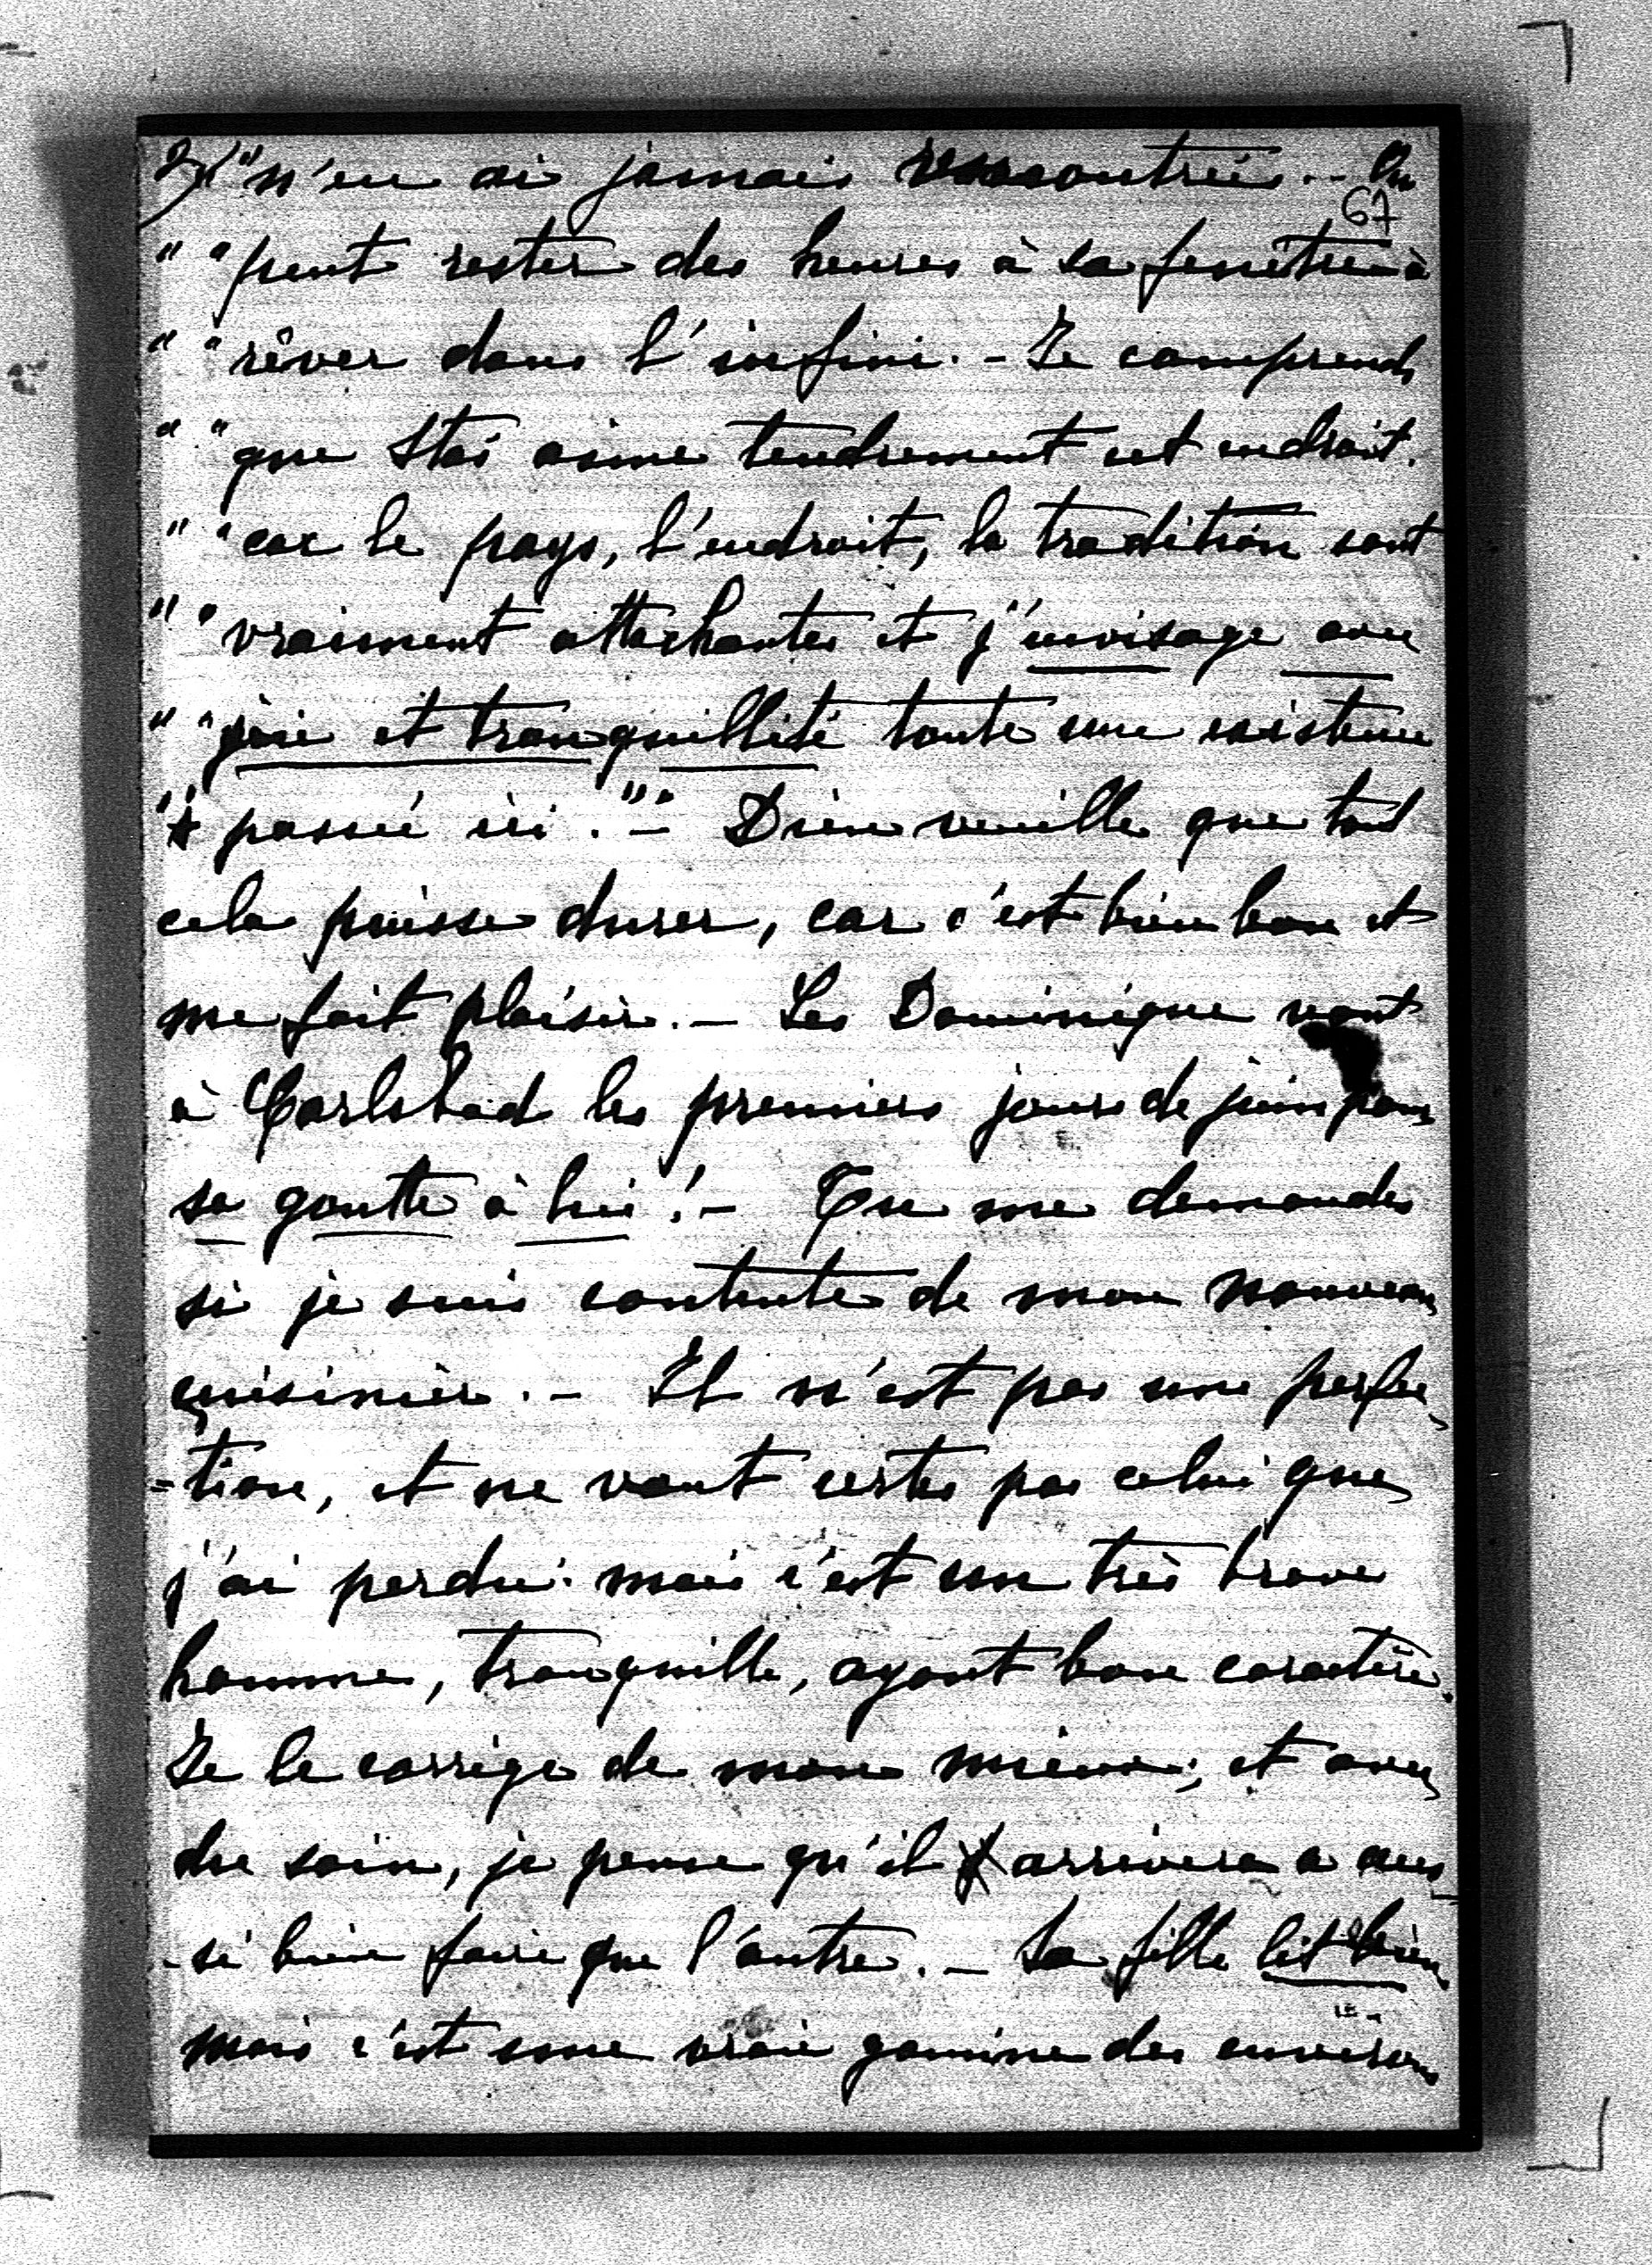 2/ " n'en ai jamais rencontrée. - On
67
" " peut rester des heures à sa fenêtre à
" " rêver dans l'infini. - Je comprends
" " que Stas aime tendrement cet endroit.
" " car le pays, l'endroit, la tradition sont
" " vraiment attachantes et j'envisage avec
" " joie et tranquillité toute une existence
" " passée ici." - Dieu veuille que tout
cela puisse durer, car c'est bien bon et
me fait plaisir. - Les Dominique vont
à Carlsbad les premiers jours de juin pour
sa goutte à lui! - Tu me demandes
si je suis contente de mon nouveau
cuisinier. - Il n'est pas une perfec
=tion, et ne vaut certes pas celui que
j'ai perdu. mais c'est un très brave
homme, tranquille, ayant bon caractère.
Je le corrige de mon mieux; et avec
du soin, je pense qu'il arrivera a aus
-si bien faire que l'autre. - Sa fille lit bien
mais c'est une vraie gamine des environs